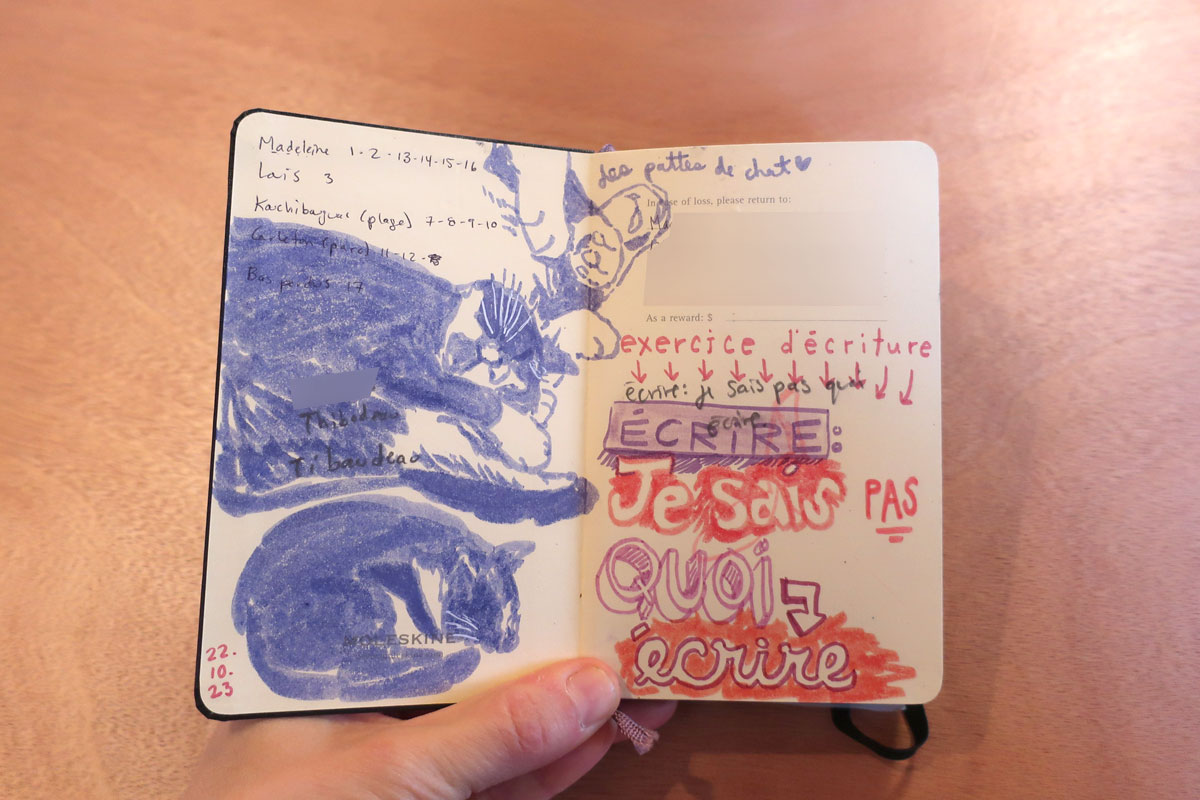 Madeleine 1-2-13-14-15-16
Laïs 3
(plage) 7-8-9-10
(parc) 11-12-
Bas perdus 17
Thibodeau
Tibaudeau
MOLESKINE
22.
10.
23
Les pattes de chat
In case of loss, please return to:
As a reward: $
exercice d'écriture
écrire: je sais pas quoi
écrire.
ÉCRIRE:
Je sais PAS
QUOI
écrire